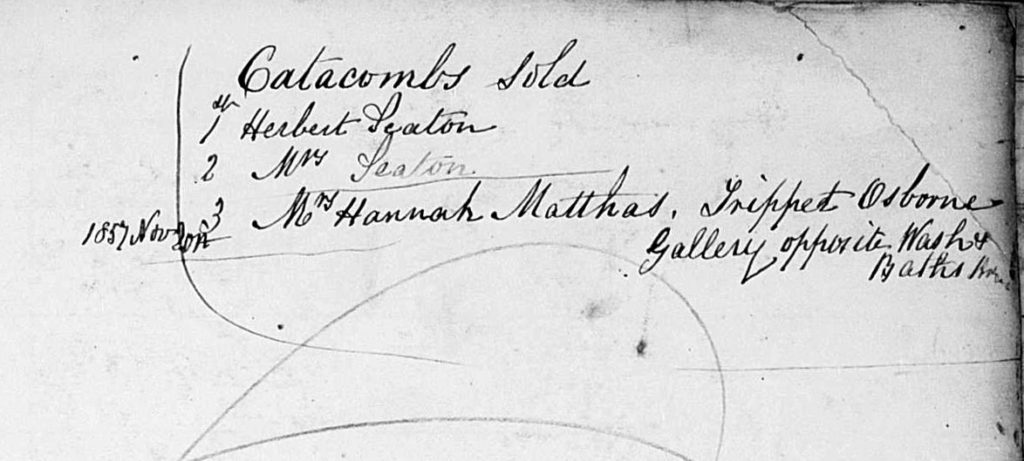 Catacombs Sold
1 Herbert Seaton
2 Mrs Seaton
3 Mrs Hannah Matthas, Trippet Osborne
1857 Nov
Gallery opposite Wash &
Baths